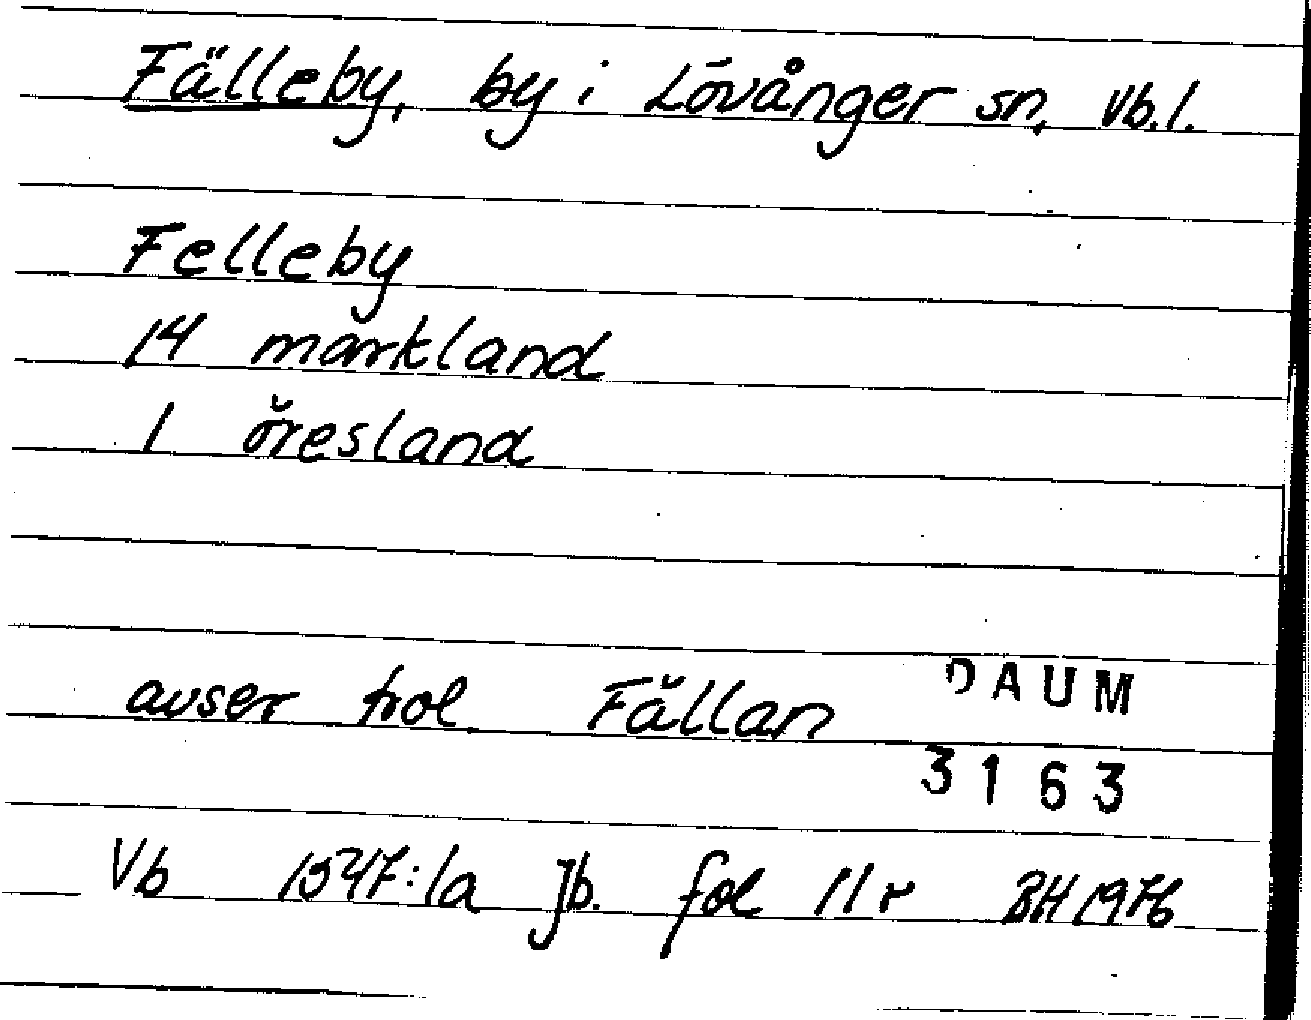 Fälleby, by i Lövånger sn, Vb.l.
Felleby
14 markland
1 öresland
avser trol Fällan
DAUM
3163
Vb 1547:1a Jb. fol 11r BH 1976